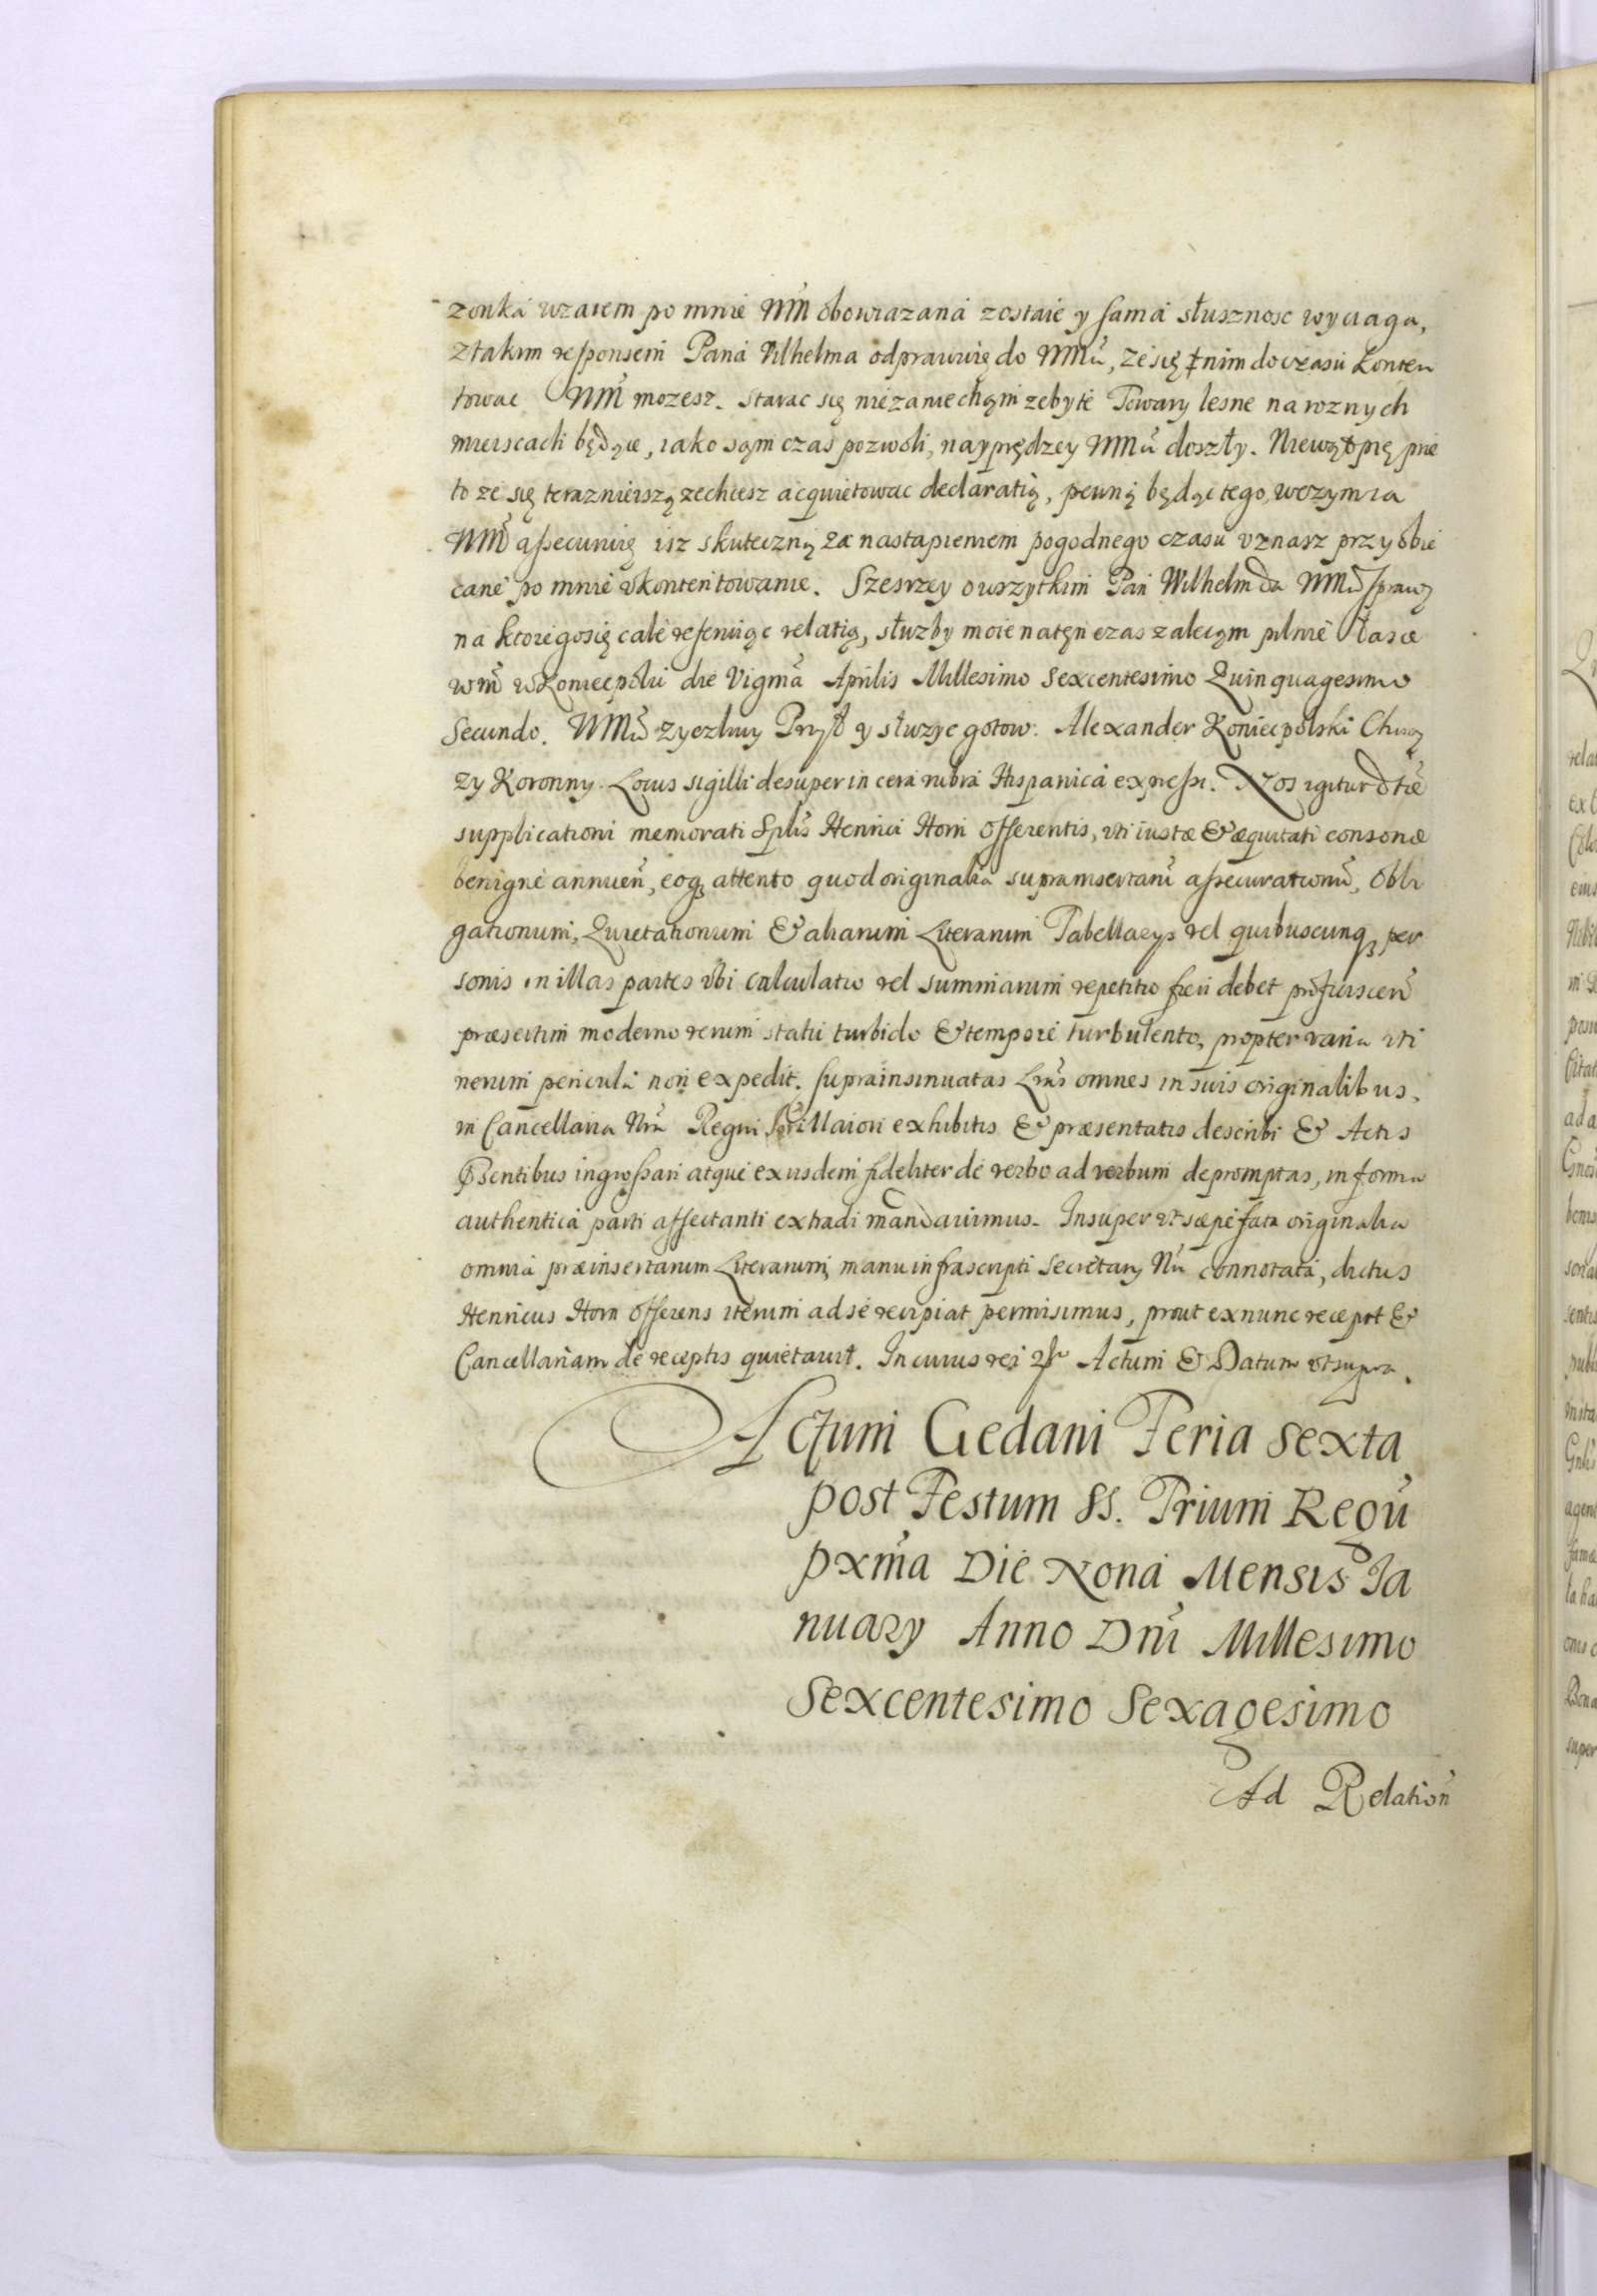 zonká wzaiem po mnie WM obowiazaná zostaie y samá słusznosc wyciaga,
ztakim responsem Paná Vilhelma odprawuię do WMci, ze się tnim do czasu konten
towac WM mozesz. Starac się niezaniecham zebyte Towary lesne na roznych
mieiscach będące, iako sąm czas pozwoli, nayprędzey WMci doszły. Niewątpię prze
to ze się terazniejszą zechcesz acquietowac declaratią, pewną będąc tego, wczym ia
WM assecuruię isz skuteczny za nastapieniem pogodnego czasu vznasz przyobie
cane po mnie vkontentowanie. Szerzey o wszytkim Pan Wilhelm da WMci sprawę
na ktoregosię cale referuiąc relatią, słuzby moie natęn czas zalecąm pilnie łasce
wm wKoniecpolu die Vigmá Aprilis Millesimo Sexcentesimo Quinquagesimo
Secundo. WMci zyczliwy Przyt y słuzyc gotow. Alexander Koniecpolski Chorą
zy Koronny. Locus sigilli desuper in cera rubra Hispanicá expressi. Nos igitur dtæ
supplicationi memorati Splis Henrici Horn Offerentis, vti iustæ & æquitati consonæ
benigné annuen, eoq attento quod originalia suprainsertarū assecurationū, Obli
gationum, Quietationum & aliarum Literarum Tabellarys vel quibuscunq, per
sonis in illas partes vbi calculatio vel summarum repetitio fieri debet proficiscen
præsertim moderno rerum statu turbido & tempore turbulento, propter varia iti
nerum periculá non expedit. suprainsinuatas Lras omnes in suis originalibus,
in Cancellaria Nra Regni Maiori exhibitis & præsentatis describi & Actis
Psentibus ingrossari atque exijsdem fideliter de verbo ad verbum depromptas, in forma
authenticá parti affectanti extradi mandavimus. Insuper vt sæpefata originalia
omniá præinsertarum Literarum, manu infrascripti Secretary Nri connotatá, dictus
Henricus Horn Offerens iterum ad sé recipiat permisimus, prout exnunc recepit &
Cancellariam de receptis quietavit. In cuius rei Actum & Datum vt supra.
Actum Gedani Feria Sexta
post Festum SS. Trium Regū
pxma Die Nona Mensis Ja
nuary Anno Dni Millesimo
Sexcentesimo Sexagesimo
Ad Relation